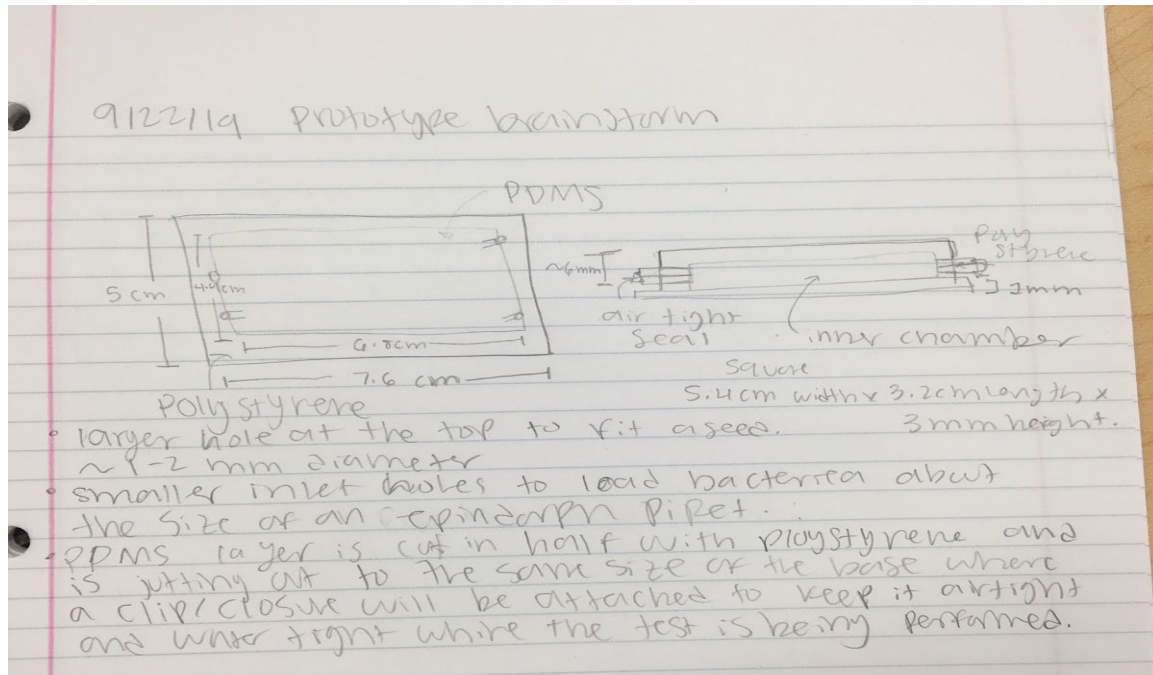 9/22/19 Prototype brainstorm
PDMS
5 cm
4.4cm
6.8cm
7.6 cm
Polystyrene
~6mm
air tight
seal
Poly
styrene
inner chamber
square
5.4cm width x 3.2cm length x
3mm height.
• larger hole at the top to fit a seed.
~1-2 mm diameter
• smaller inlet holes to load bacterea abut
the size of an epindorph pipet.
• PDMS layer is cut in half with ploystyrene and
is jutting out to the same size of the base where
a clip/closure will be attached to keep it airtight
and water tight while the test is being performed.